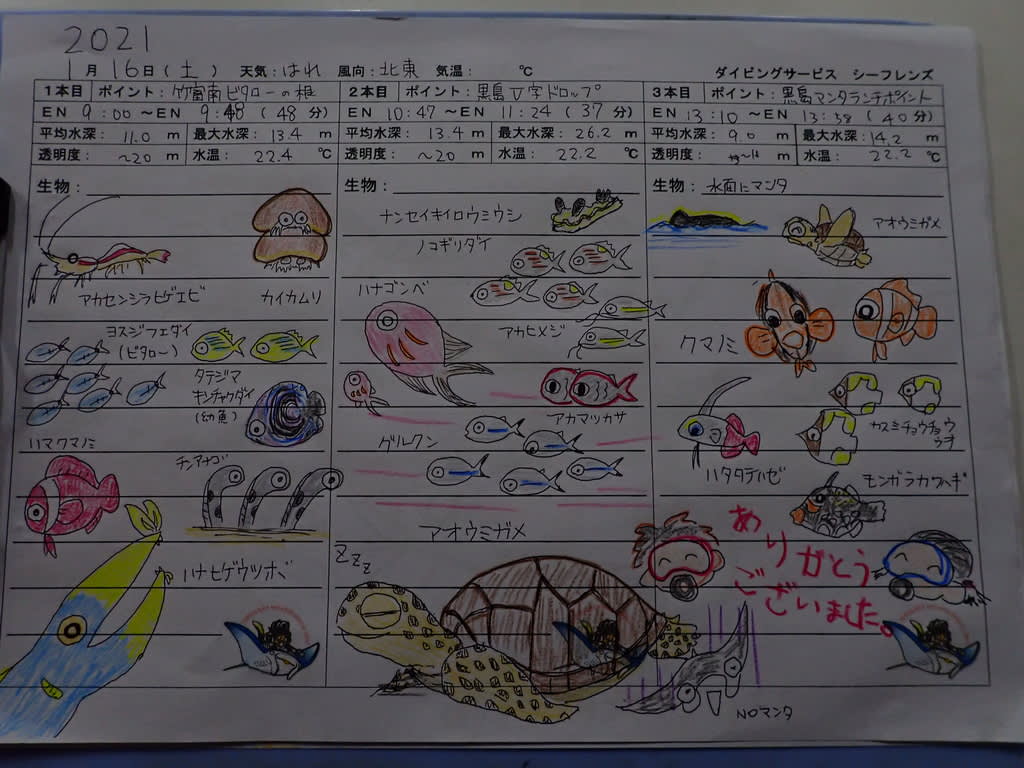 2021
1月16日(土) 天気:はれ 風向:北東 気温: ℃
ダイビングサービス シーフレンズ
1本目 ポイント:竹富南ビタローの根
EN 9:00 ～EN 9:48 (48分)
平均水深: 11.0 m 最大水深: 13.4 m
透明度: ～20 m 水温: 22.4 ℃
生物:
アカセンシラヒゲエビ カイカムリ
ヨスジフエダイ
(ビタロー)
タテジマ
キンチャクダイ
(幼魚)
ハマクマノミ
チンアナゴ
ハナヒゲウツボ
2本目 ポイント:黒島V字ドロップ
EN 10:47 ～EN 11:24 (37分)
平均水深: 13.4 m 最大水深: 26.2 m
透明度: ～20 m 水温: 22.2 ℃
生物:
ナンセイキイロウミウシ
ノコギリダイ
ハナゴンベ
アカヒメジ
アカマツカサ
グルクン
アオウミガメ
ZZZ
3本目 ポイント:黒島マンタランチポイント
EN 13:10 ～EN 13:58 (40分)
平均水深: 9.0 m 最大水深: 14.2 m
透明度: m 水温: 22.2 ℃
生物: 水面にマンタ
アオウミガメ
クマノミ
カスミチョウチョウ
ウヲ
ハタタテハゼ
モンガラカワハギ
ありがとう
ございました。
NOマンタ